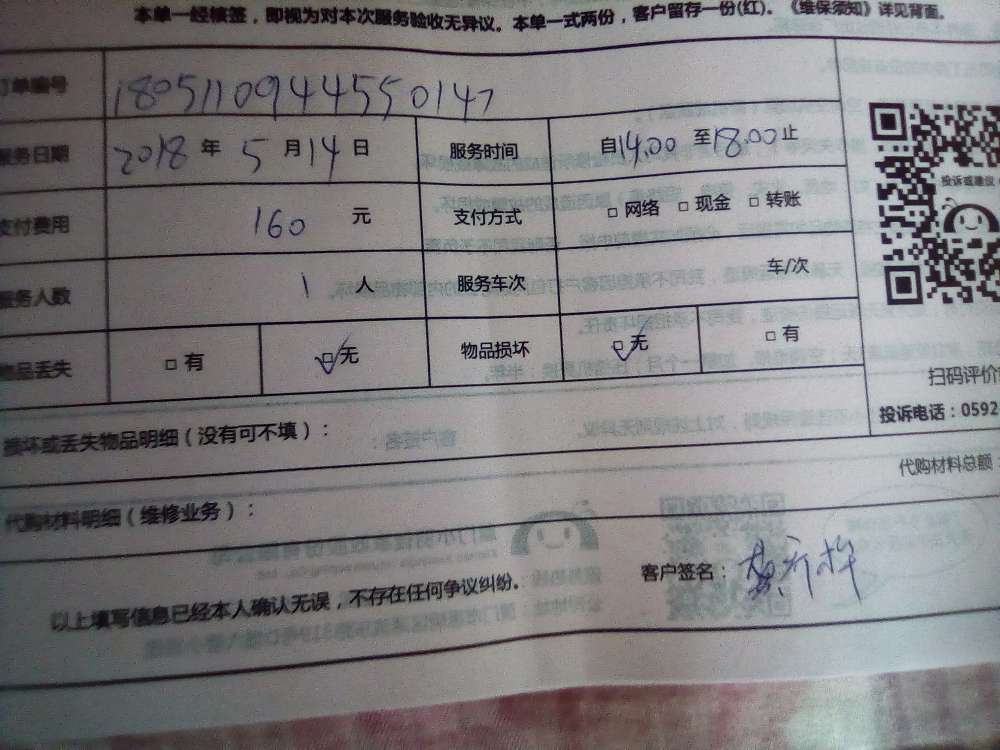 本单一经核签，即视为对本次服务验收无异议。本单一式两份，客户留存一份(红)。《维保须知》详见背面。
订单编号 1805110944550147
服务日期 2018 年 5 月 14 日 服务时间 自14.00 至18.00止
支付费用 160 元 支付方式 □ 网络 □ 现金 □ 转账
投诉或建议
服务人数 1 人 服务车次 车/次
物品丢失 □ 有 ☑ 无 物品损坏 ☑ 无 □ 有
扫码评价
损坏或丢失物品明细（没有可不填）：
投诉电话：0592
代购材料明细（维修业务）：
代购材料总额：
以上填写信息已经本人确认无误，不存在任何争议纠纷。
客户签名：